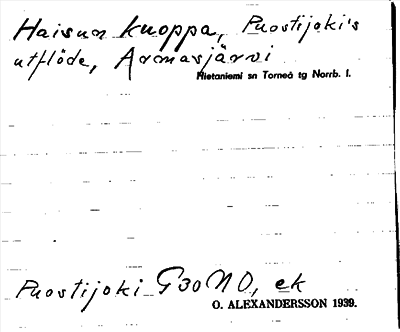 Haisun kuoppa, Puostijoki's
utflöde, Armasjärvi
Hietaniemi sn Torneå tg Norrb. l.
Puostijoki G30NO, ek
O. ALEXANDERSSON 1939.